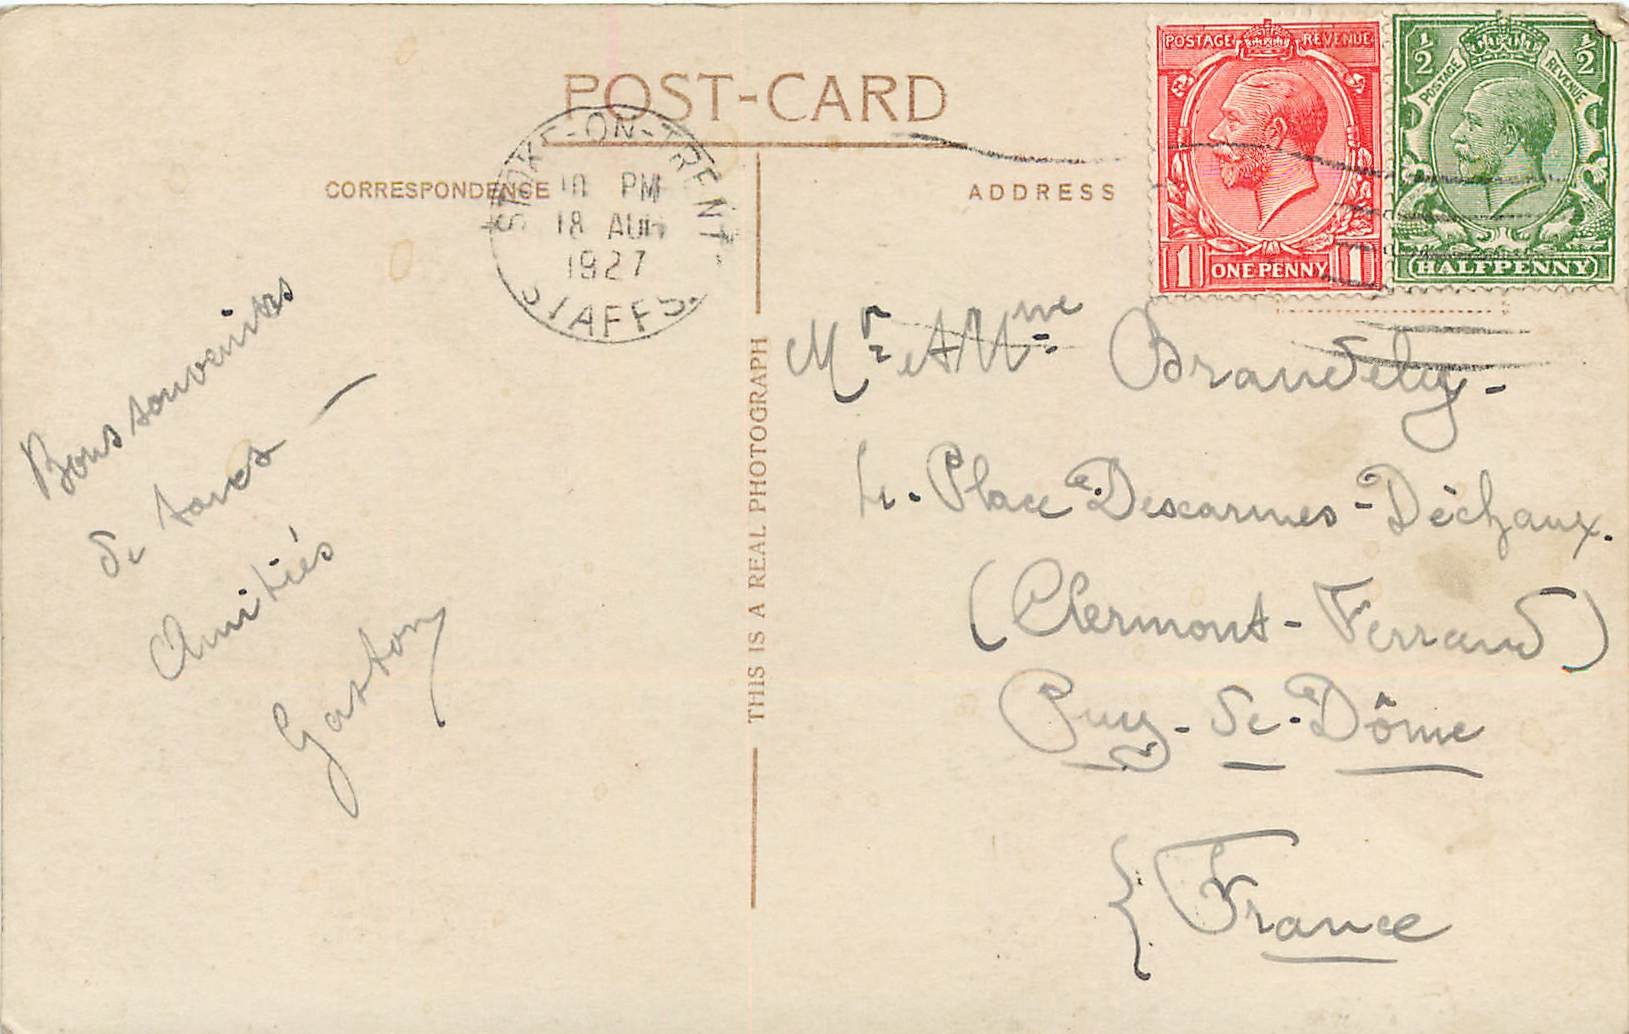 POST-CARD
CORRESPONDENCE
ADDRESS
STOKE-ON-TRENT
10 PM
18 AUG
1927
STAFFS.
POSTAGE REVENUE
1 ONE PENNY 1
½ ½
POSTAGE REVENUE
HALFPENNY
THIS IS A REAL PHOTOGRAPH
Bons souvenirs
de tous —
Amitiés
Gaston
Mr et Mme Brandely -
Place Descarmes-Déchaux.
(Clermont-Ferrand)
Puy-de-Dôme
France